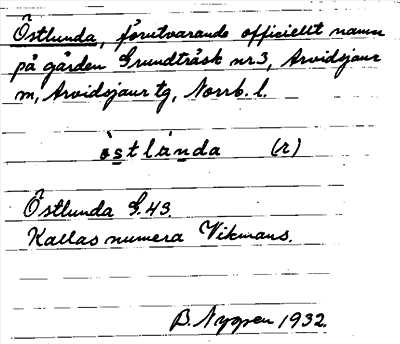 Östlunda, förutvarande officiellt namn
på gården Grundträsk nr 3, Arvidsjaur
sn, Arvidsjaur tg, Norrb. l.
östlúnda (r)
Östlunda G.43.
Kallas numera Vikmans.
B. Nygren 1932.